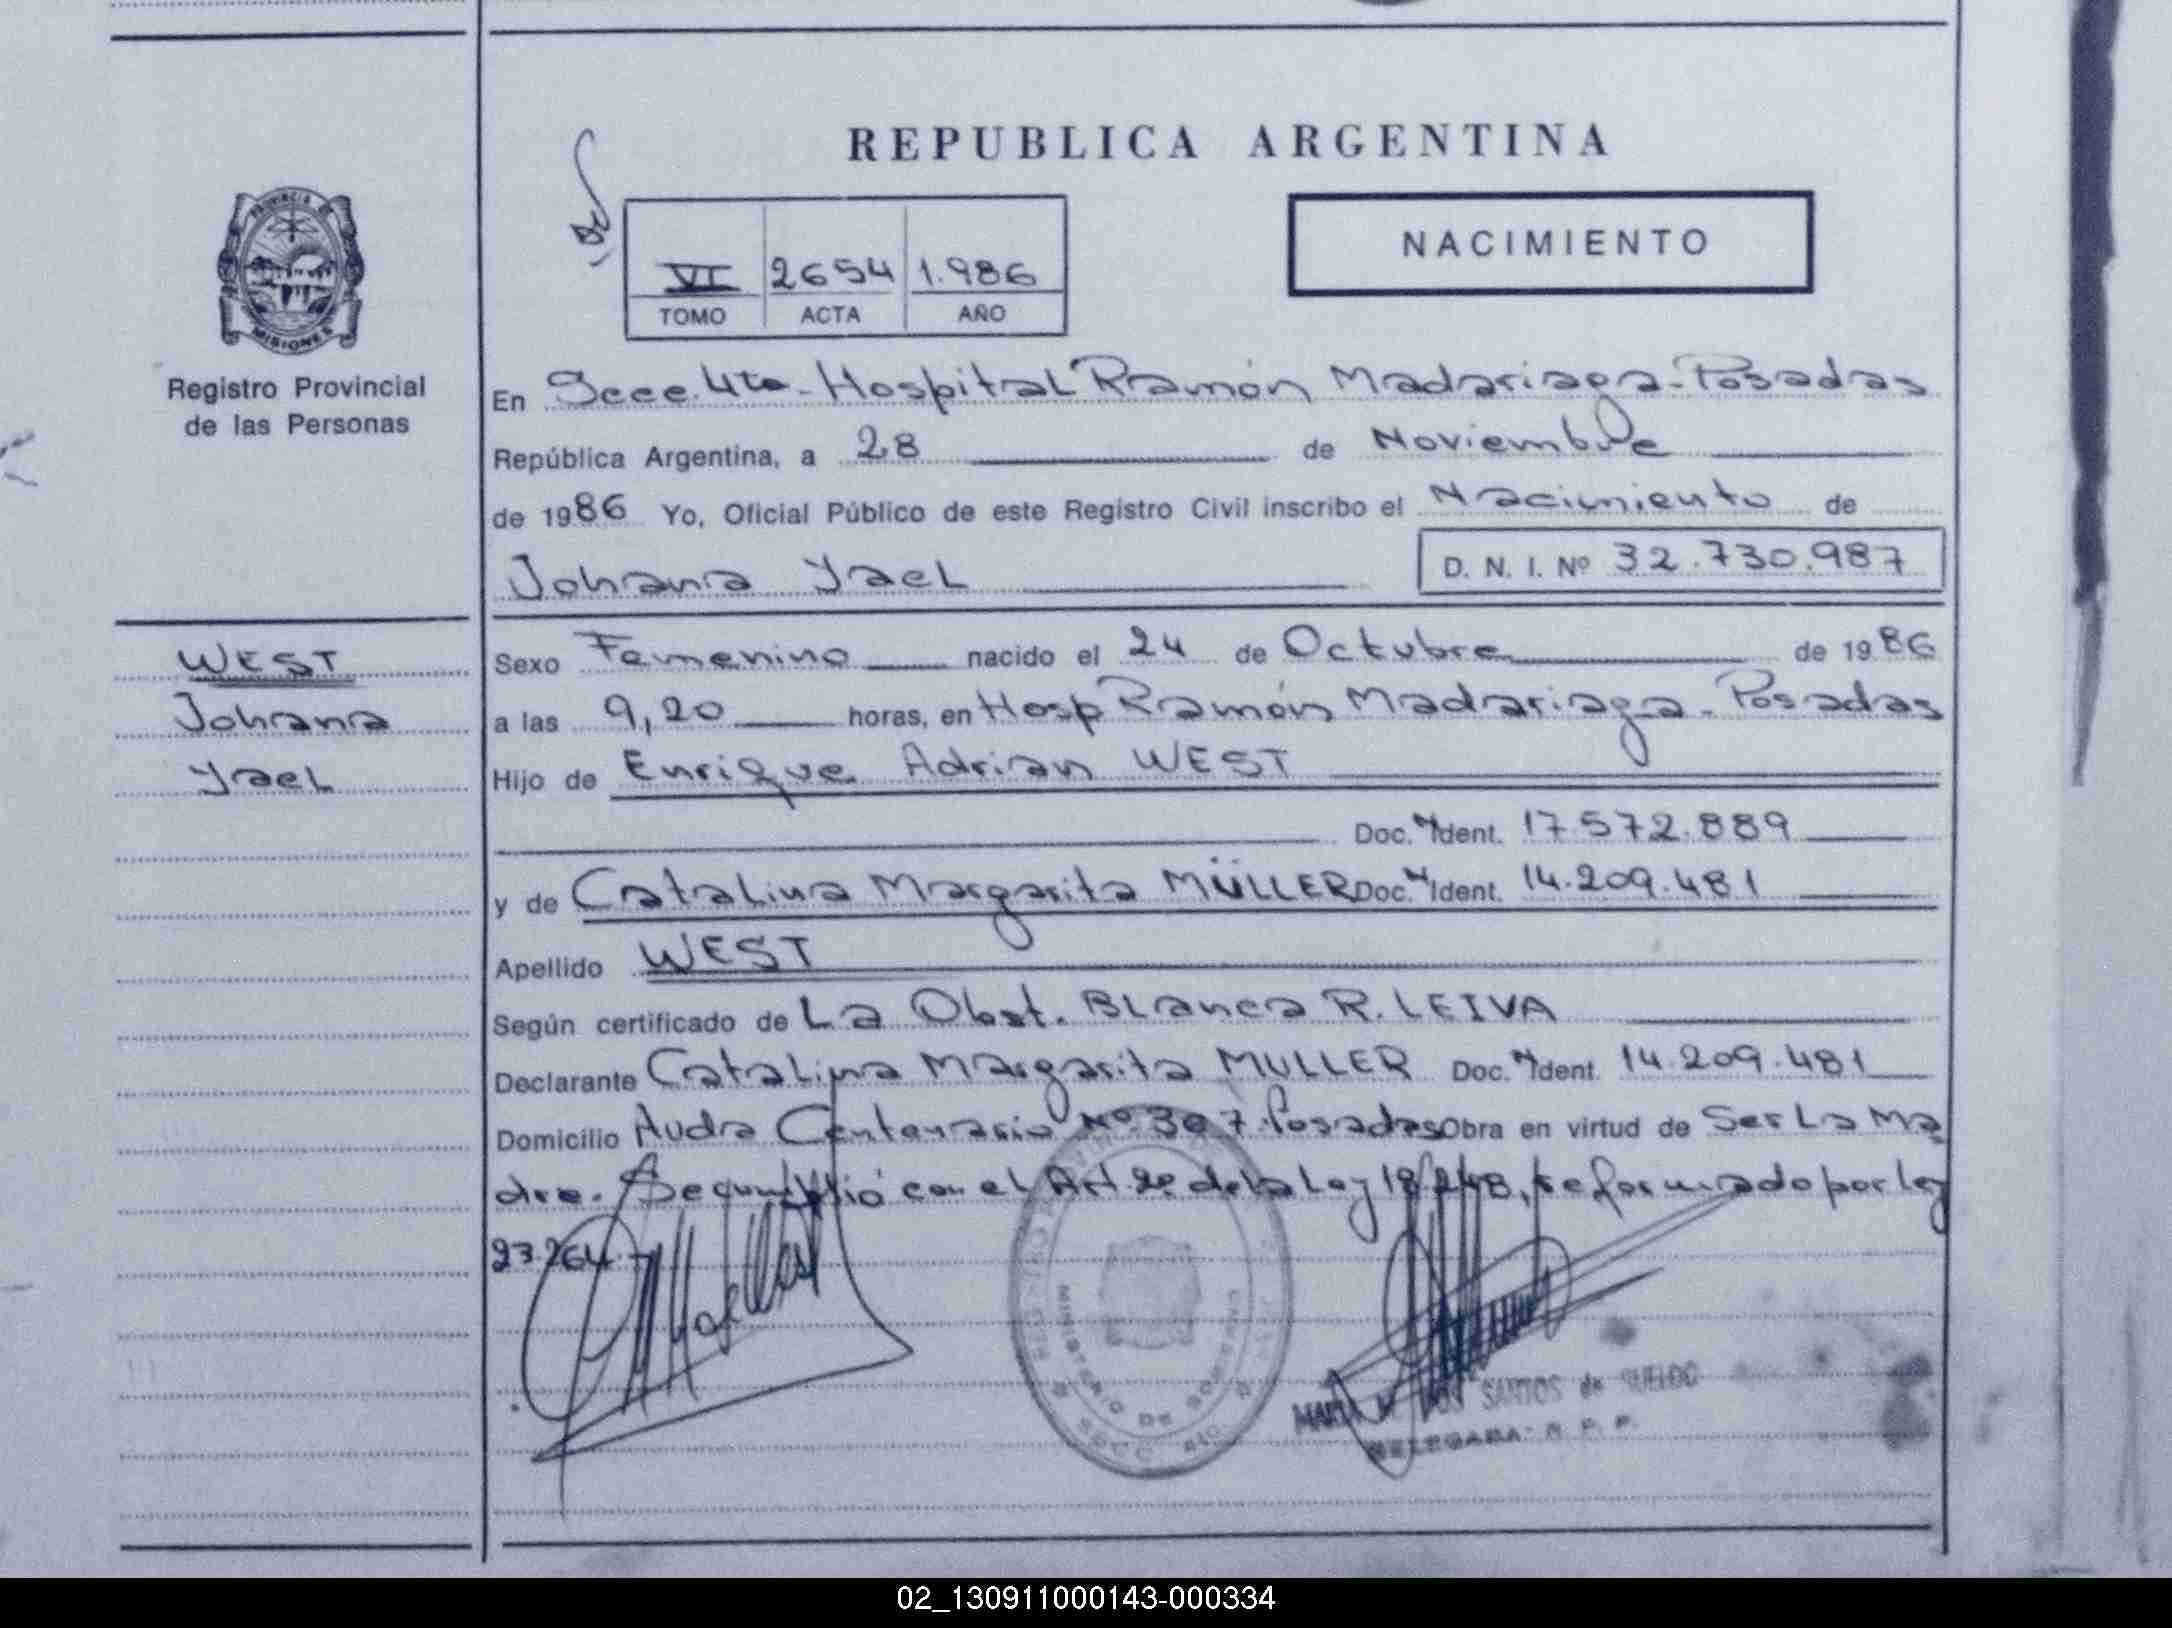 REPUBLICA ARGENTINA
NACIMIENTO
VI 2654 1.986
TOMO ACTA AÑO
PROVINCIA DE
MISIONES
Registro Provincial
de las Personas
En Secc. 4ta - Hospital Ramón Madariaga - Posadas
República Argentina, a 28 de Noviembre
de 1986 Yo, Oficial Público de este Registro Civil inscribo el Nacimiento de
Johana Yael D. N. I. Nº 32.730.987
WEST
Johana
Yael
Sexo Femenino nacido el 24 de Octubre de 1986
a las 9,20 horas, en Hosp Ramón Madariaga - Posadas
Hijo de Enrique Adrian WEST
Doc. Ident. 17.572.889
y de Catalina Margarita MÜLLER Doc. Ident. 14.209.481
Apellido WEST
Según certificado de La Obst. Blanca R. LEIVA
Declarante Catalina Margarita MULLER Doc. Ident. 14.209.481
Domicilio Avda Centenario Nº 307 Posadas Obra en virtud de Ser La Ma
dre. Se cumplió con el Art. 2º de la Ley 18.248, reformado por ley
23.264.-
MINISTERIO DE GOBIERNO
SANTOS de SUELDO
DELEGADA - R. P. P.
02_130911000143-000334